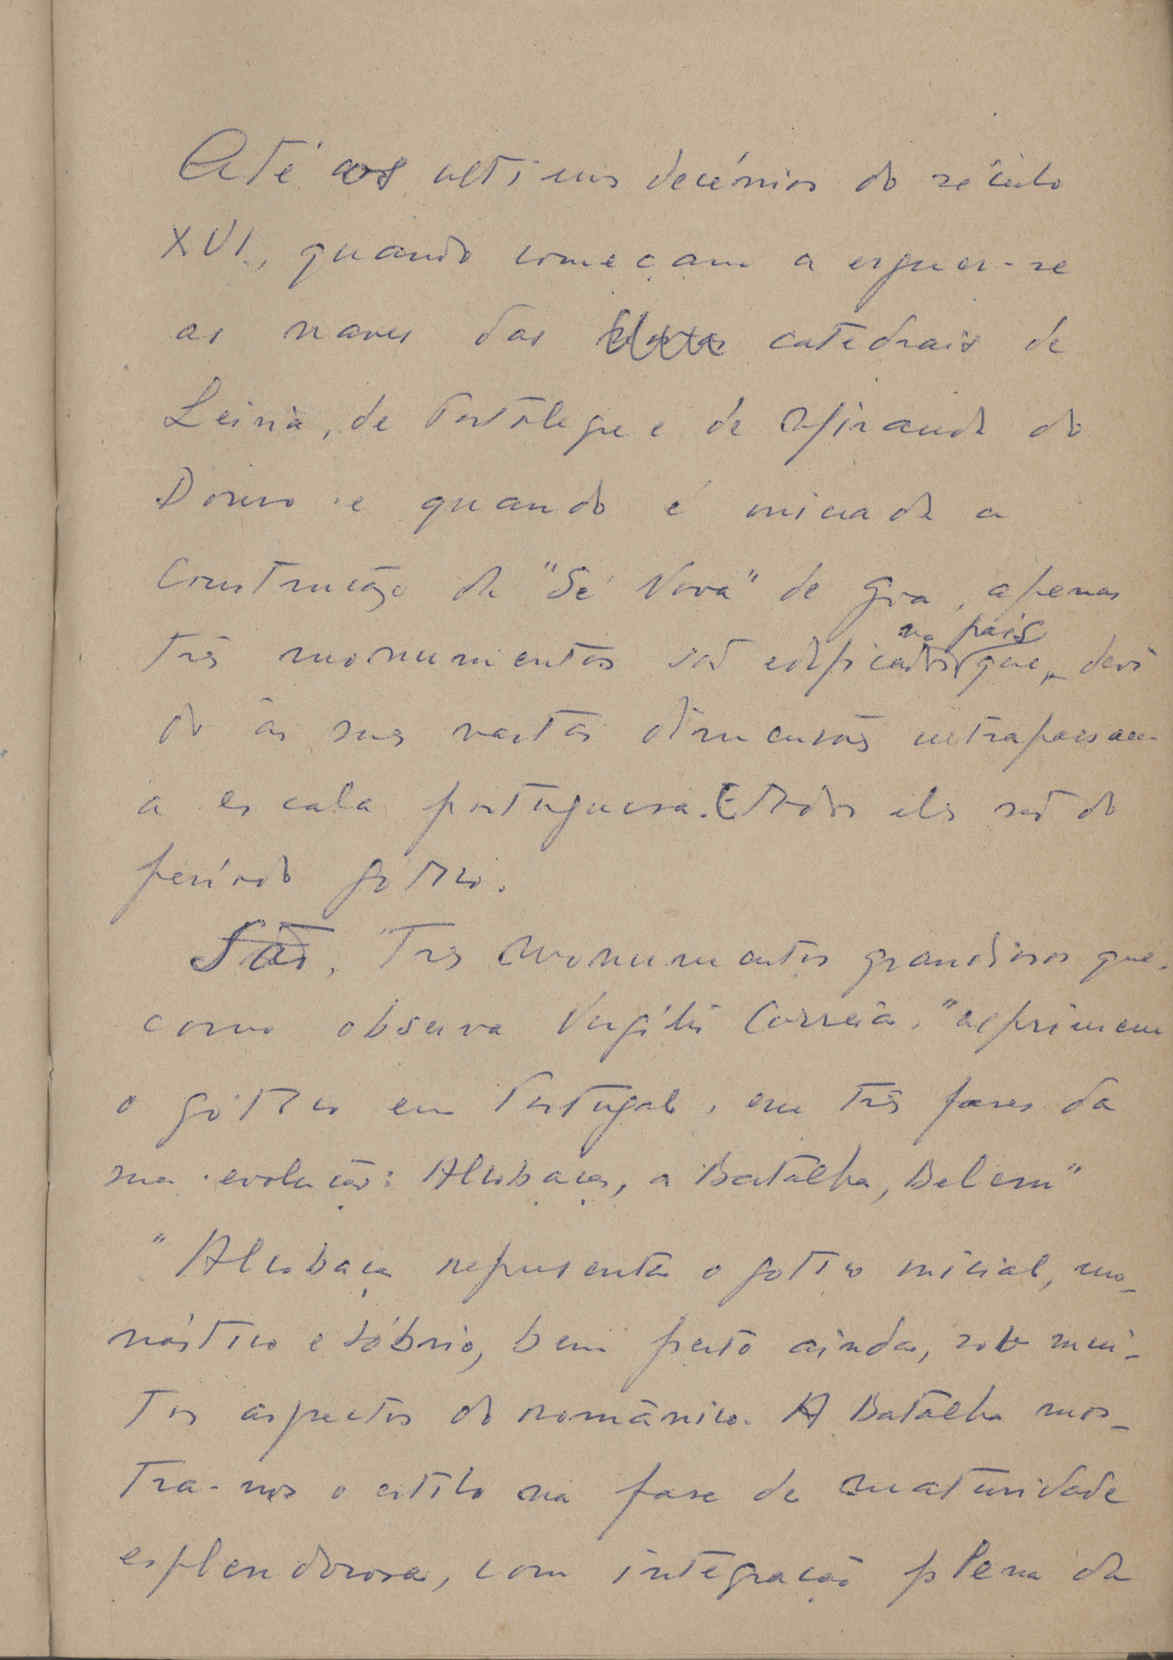 Até aos ultimos decénios do século
XVI, quando começam a erguer-se
as naves das catedrais de
Leiria, de Portalegre e de Miranda do
Douro e quando é iniciada a
construção da "Sé Nova" de Goa, apenas
no país
três monumentos são edificados que, devi
do às suas vastas dimensões ultrapassam
a escala portuguesa. E todos eles são do
período gótico.
São, Três monumentos grandiosos que,
como observa Vergílio Correia, "exprimem
o gótico em Portugal, em três fases da
sua evolução: Alcobaça, a Batalha, Belem"
"Alcobaça representa o gotico inicial, mo-
nástico e sóbrio, bem perto ainda, sob mui-
tos aspectos do românico. A Batalha mos-
tra-nos o estilo na fase de maturidade
esplendorosa, com integração plena da